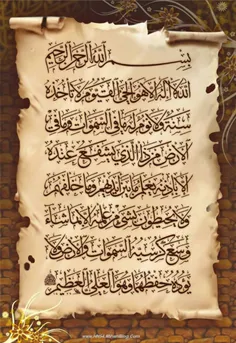 بسم الله الرحمن الرحيم
الله لا اله الا هو الحي القيوم لا تاخذه
سنة ولا نوم له ما في السموات وما في
الارض من ذا الذي يشفع عنده
الا باذنه يعلم ما بين ايديهم وما خلفهم
ولا يحيطون بشيء من علمه الا بما شاء
وسع كرسيه السموات والارض ولا
يوده حفظهما وهو العلي العظيم